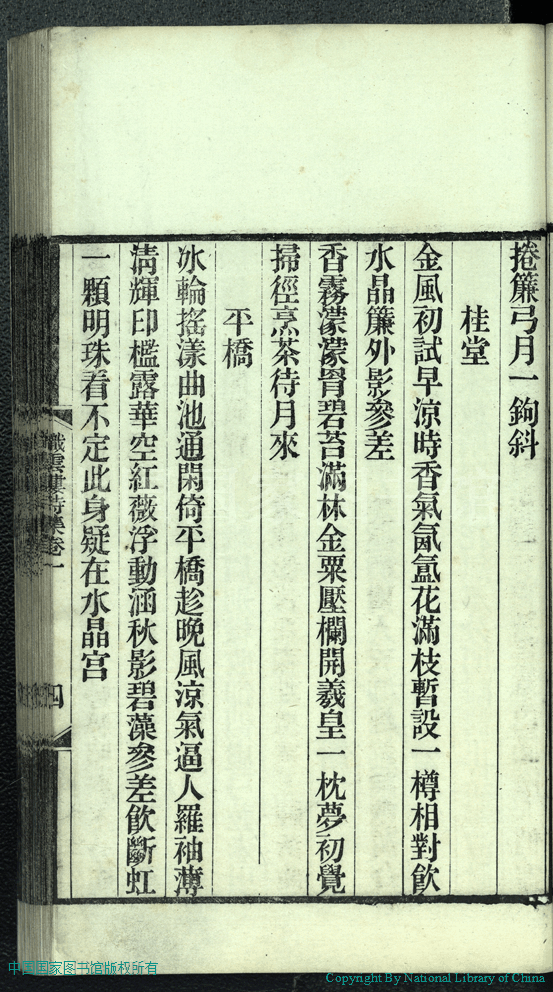 捲簾弓月一鉤斜
桂堂
金風初試早涼時香氣氤氳花滿枝暫設一樽相對飲
水晶簾外影參差
香霧濛濛罥碧苔滿林金粟壓欄開羲皇一枕夢初覺
掃徑烹茶待月來
平橋
冰輪搖漾曲池通閑倚平橋趁晚風涼氣逼人羅袖薄
清輝印檻露華空紅薇浮動涵秋影碧藻參差飲斷虹
一顆明珠看不定此身疑在水晶宮
織雲樓詩集卷一
四
中国国家图书馆版权所有
Copyright By National Library of China